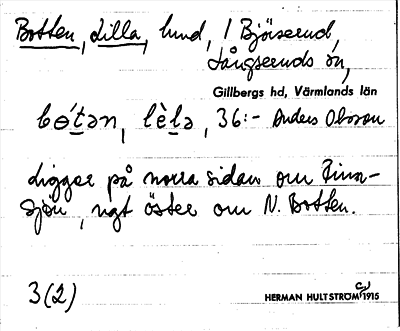 Botten, Lilla, hmd, i Bjöiserud,
Långseruds sn,
Gillbergs hd, Värmlands län
bǿtən, lèlə, 36:- Anders Olsson
Ligger på norra sidan om Finn-
sjön, ngt öster om N. Botten.
3(2)
HERMAN HULTSTRÖM 1915